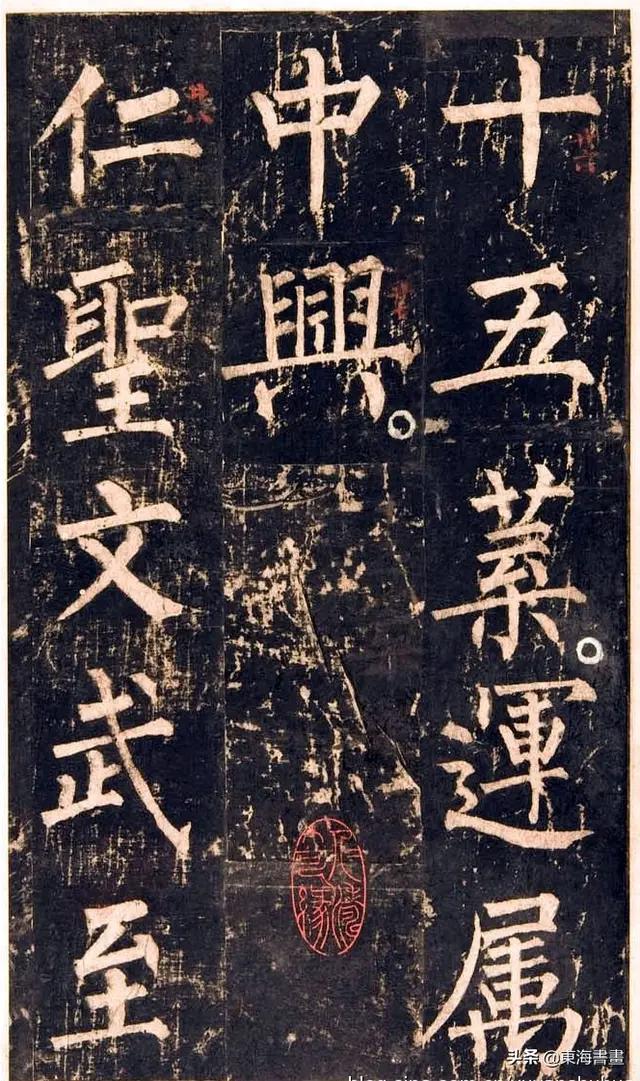 十五葉運属
中興
仁聖文武至
头条 @東海書畫